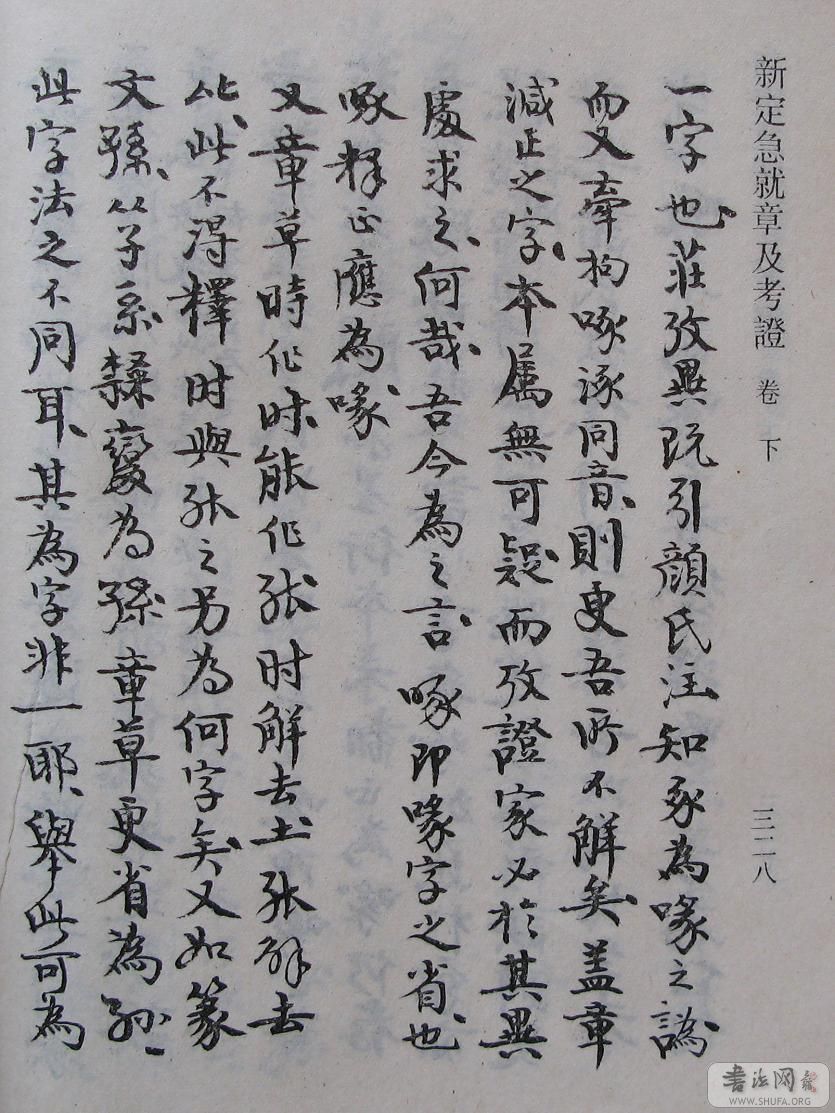 新定急就章及考證 卷 下 三二八
一字也莊攷異既引顏氏注知豖為喙之譌
而又牽拘啄涿同音則更吾所不解矣蓋章
減正之字本屬無可疑而攷證家必於其異
處求之何哉吾今為之言啄即喙字之省也
啄釋正應為喙
又章草時作时能作𫧇时解去土張解去
此不得釋时與张之另為何字矣又如篆
文孫从子系隸變為孫章草更省為孙
此字法之不同耳其為字非一耶舉此可為
書法网
WWW.SHUFA.ORG